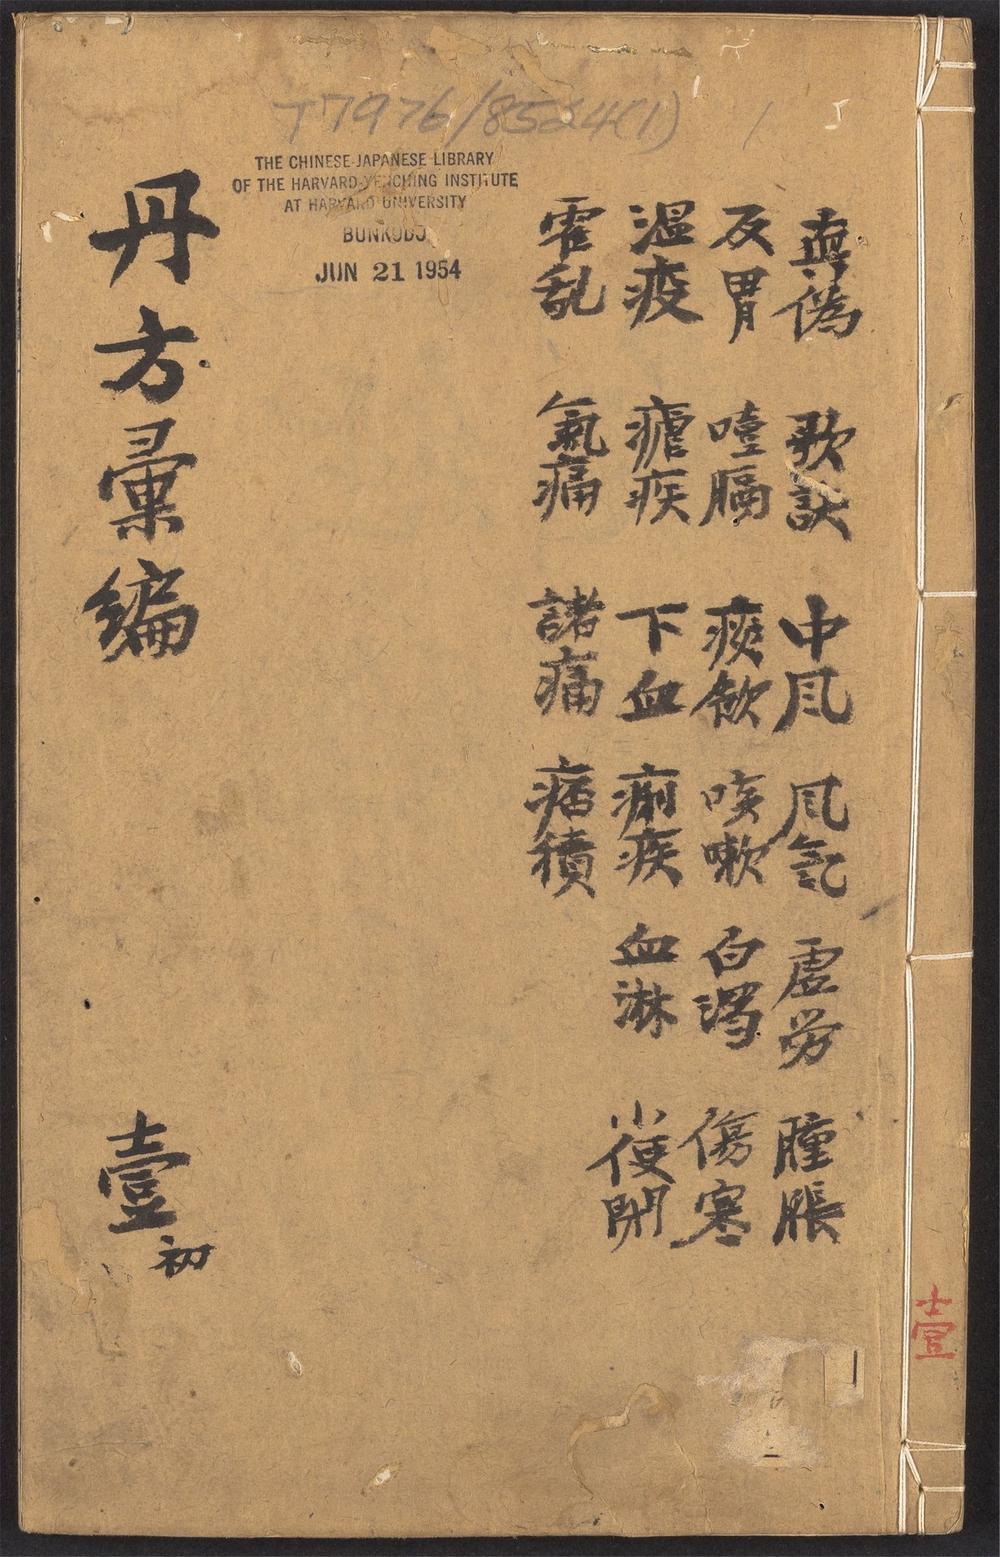 T7976/8524(1) 1
THE CHINESE-JAPANESE LIBRARY
OF THE HARVARD-YENCHING INSTITUTE
AT HARVARD UNIVERSITY
BUNKODO
JUN 21 1954
真偽 歌訣 中風 風氣 虛労 腫脹
反胃 噎膈 痰飲 咳嗽 白濁 傷寒
温疫 瘧疾 下血 痢疾 血淋 小便閉
霍乱 氣痛 諸痛 痞積
丹方彙編 壹 初
壹